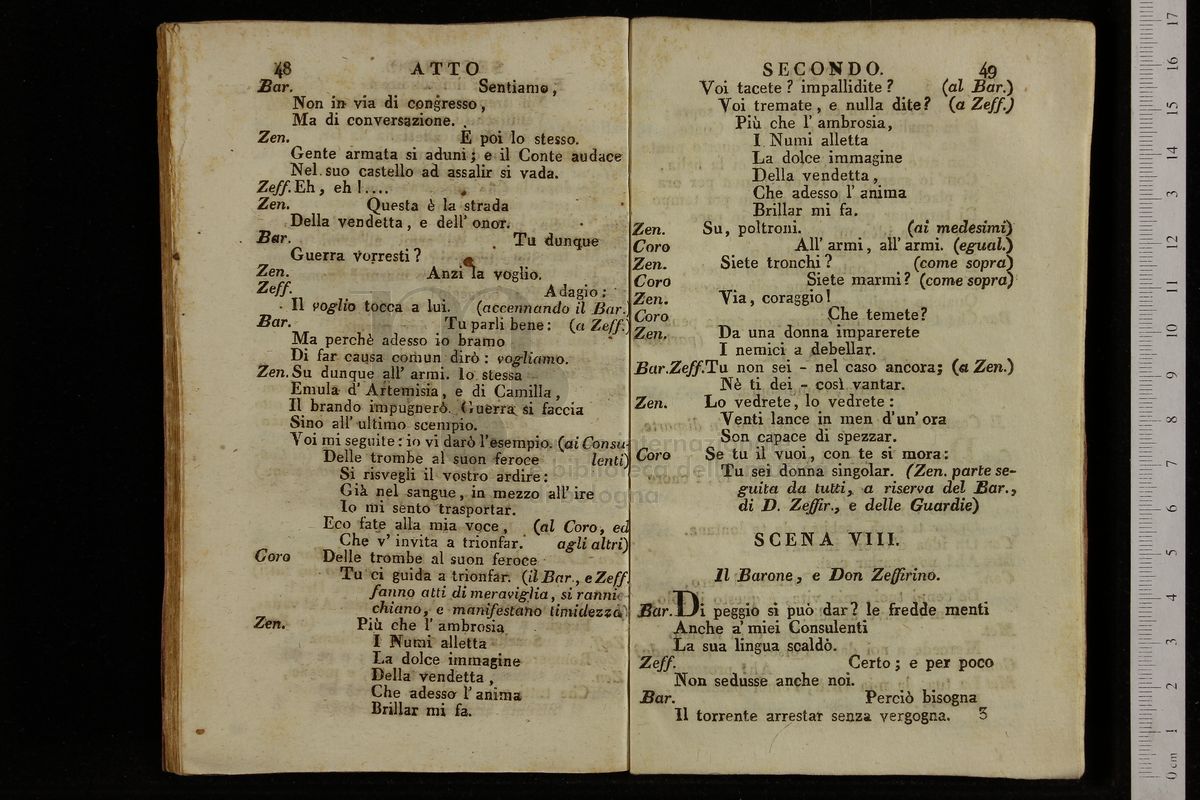 48 ATTO
Bar. Sentiamo,
Non in via di congresso,
Ma di conversazione.
Zen. E poi lo stesso.
Gente armata si aduni; e il Conte audace
Nel suo castello ad assalir si vada.
Zeff. Eh, eh!....
Zen. Questa è la strada
Della vendetta, e dell' onor.
Bar. Tu dunque
Guerra vorresti?
Zen. Anzi la voglio.
Zeff. Adagio:
Il voglio tocca a lui. (accennando il Bar.)
Bar. Tu parli bene: (a Zeff.)
Ma perchè adesso io bramo
Di far causa comun dirò: vogliamo.
Zen. Su dunque all' armi. Io stessa
Emula d' Artemisia, e di Camilla,
Il brando impugnerò. Guerra si faccia
Sino all' ultimo scempio.
Voi mi seguite: io vi darò l'esempio. (ai Consu-
Delle trombe al suon feroce lenti)
Si risvegli il vostro ardire:
Già nel sangue, in mezzo all' ire
Io mi sento trasportar.
Eco fate alla mia voce, (al Coro, ed
Che v' invita a trionfar. agli altri)
Coro Delle trombe al suon feroce
Tu ci guida a trionfar. (il Bar., e Zeff.
fanno atti di meraviglia, si rannic-
chiano, e manifestano timidezza)
Zen. Più che l' ambrosia
I Numi alletta
La dolce immagine
Della vendetta,
Che adesso l' anima
Brillar mi fa.
SECONDO. 49
Voi tacete? impallidite? (al Bar.)
Voi tremate, e nulla dite? (a Zeff.)
Più che l' ambrosia,
I Numi alletta
La dolce immagine
Della vendetta,
Che adesso l' anima
Brillar mi fa.
Zen. Su, poltroni. (ai medesimi)
Coro All' armi, all' armi. (egual.)
Zen. Siete tronchi? (come sopra)
Coro Siete marmi? (come sopra)
Zen. Via, coraggio!
Coro Che temete?
Zen. Da una donna imparerete
I nemici a debellar.
Bar. Zeff. Tu non sei - nel caso ancora; (a Zen.)
Nè ti dei - così vantar.
Zen. Lo vedrete, lo vedrete:
Venti lance in men d'un' ora
Son capace di spezzar.
Coro Se tu il vuoi, con te si mora:
Tu sei donna singolar. (Zen. parte se-
guita da tutti, a riserva del Bar.,
di D. Zeffir., e delle Guardie)
SCENA VIII.
Il Barone, e Don Zeffirino.
Bar. Di peggio si può dar? le fredde menti
Anche a' miei Consulenti
La sua lingua scaldò.
Zeff. Certo; e per poco
Non sedusse anche noi.
Bar. Perciò bisogna
Il torrente arrestar senza vergogna. 3